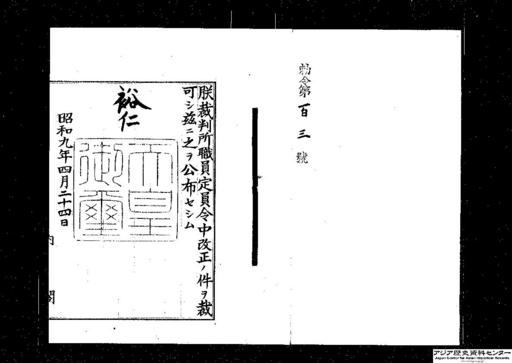 勅令第百三號
朕裁判所職員定員令中改正ノ件ヲ裁
可シ茲ニ之ヲ公布セシム
裕仁
天皇御璽
昭和九年四月二十四日
内閣
アジア歴史資料センター
Japan Center for Asian Historical Records